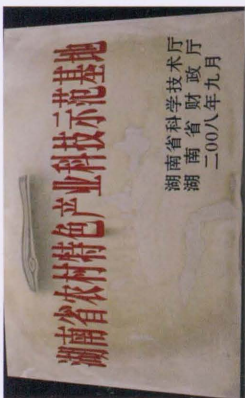 湖南省农村特色产业科技示范基地
湖南省科学技术厅
湖南省财政厅
二00八年九月